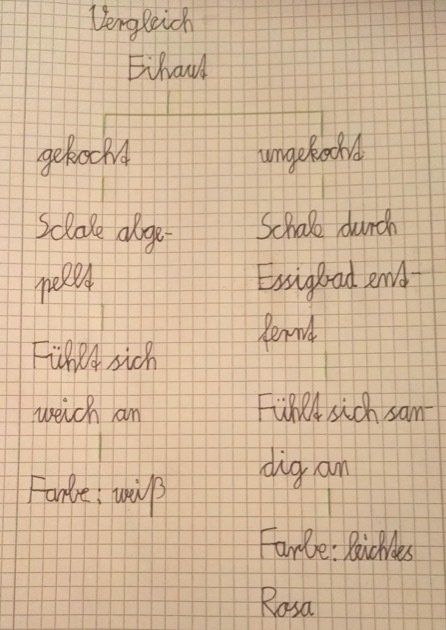 Vergleich
Eihaut
gekocht
Sclale abge-
pellt
Fühlt sich
weich an
Farbe: weiß
ungekocht
Schale durch
Essigbad ent-
fernt
Fühlt sich san-
dig an
Farbe: leichtes
Rosa